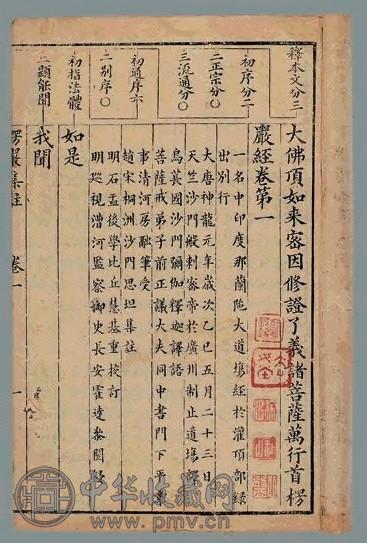 釋本文分三
初序分二
二正宗分〇
三流通分〇
初通序六
二別序〇
初指法體
二顯能聞
大佛頂如來密因修證了義諸菩薩萬行首楞
嚴經卷第一
一名中印度那蘭陁大道場經於灌頂部錄
出別行
大唐神龍元年歲次乙巳五月二十三日
天竺沙門般剌密帝於廣州制止道場
烏萇國沙門彌伽釋迦譯語
菩薩戒弟子前正議大夫同中書門下平
事清河房融筆受
趙宋桐洲沙門思坦集註
明石孟後學比丘慧基重校訂
明巡視漕河監察御史長安霍達參閱
如是
我聞
楞嚴集註
卷一
一
中华收藏网
www.pmv.cn